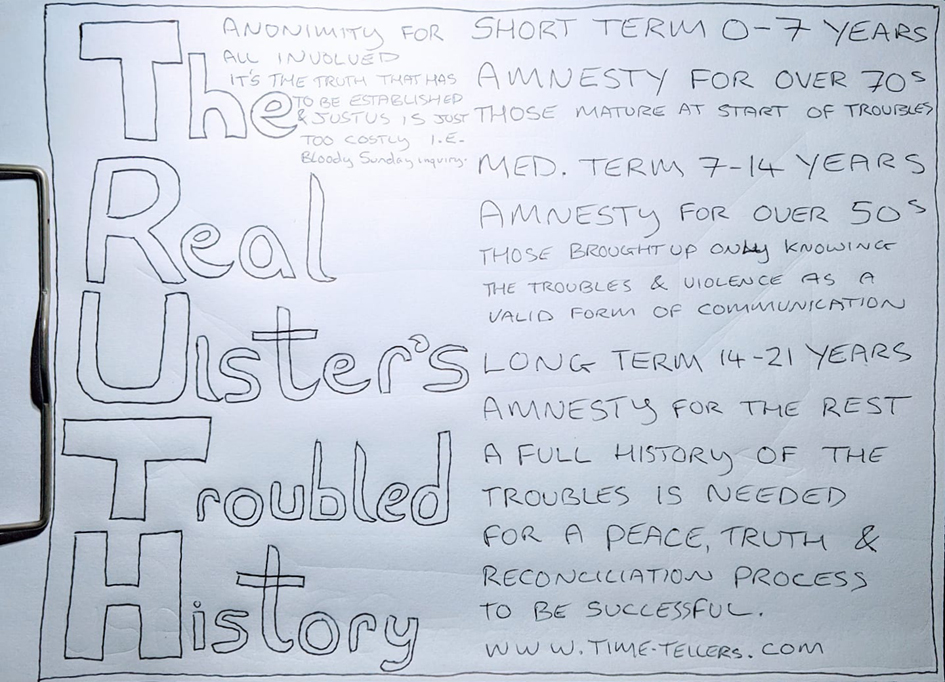 The
Real
Ulster's
Troubled
History
ANONIMITY FOR
ALL INVOLVED
IT'S THE TRUTH THAT HAS
TO BE ESTABLISHED
& JUSTUS IS JUST
TOO COSTLY I.E.
Bloody Sunday inquiry.
SHORT TERM 0-7 YEARS
AMNESTY FOR OVER 70s
THOSE MATURE AT START OF TROUBLES
MED. TERM 7-14 YEARS
AMNESTY FOR OVER 50s
THOSE BROUGHT UP ONLY KNOWING
THE TROUBLES & VIOLENCE AS A
VALID FORM OF COMMUNICATION
LONG TERM 14-21 YEARS
AMNESTY FOR THE REST
A FULL HISTORY OF THE
TROUBLES IS NEEDED
FOR A PEACE, TRUTH &
RECONCILIATION PROCESS
TO BE SUCCESSFUL.
WWW.TIME-TELLERS.COM